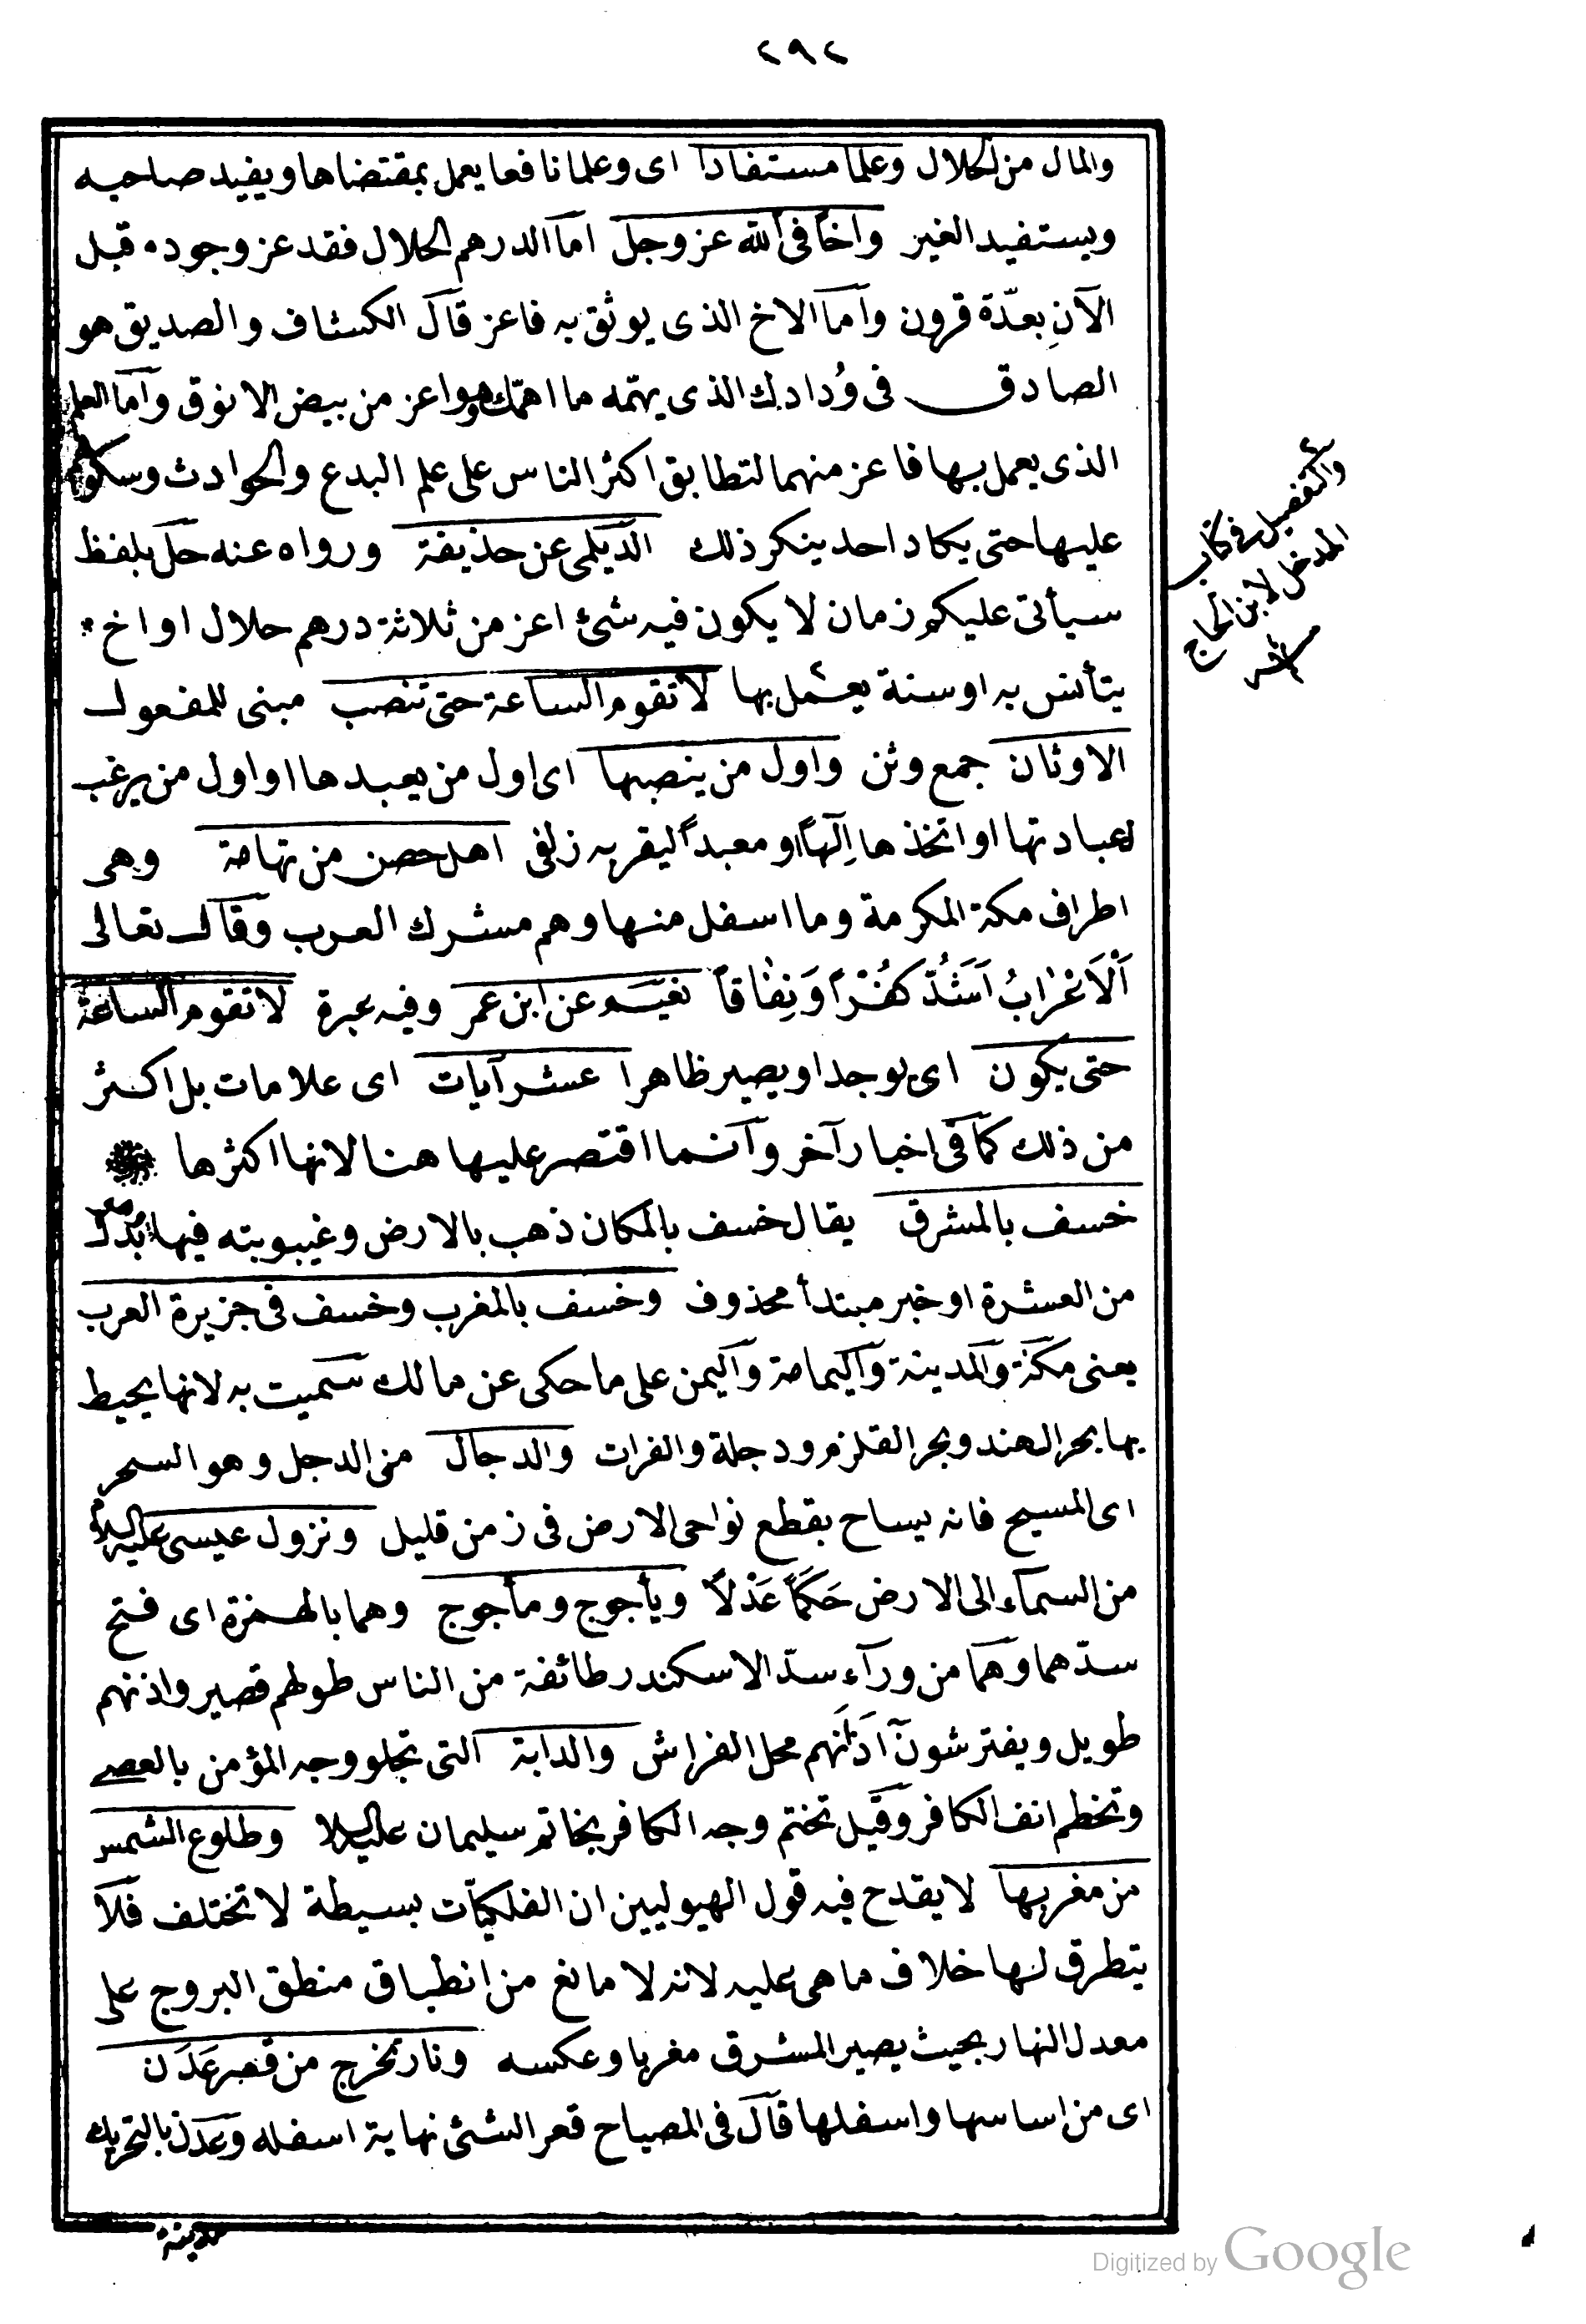 ٢٩٢
والمال من الحلال وعلما مستفادا اى وعلما نافعا يعمل بمقتضاها ويفيد صاحبه
ويستفيد الغير واخا فى الله عز وجل اما الدرهم الحلال فقد عز وجوده قبل
الآن بعدّة قرون واما الاخ الذى يوثق به فاعز قال الكشاف والصديق هو
الصادق فى وُدادك الذى يهمّه ما اهمّك وهو اعز من بيض الانوق واما العلم
الذى يعمل بها فاعز منهما لتطابق اكثر الناس على علم البدع والحوادث وسكوتهم
عليها حتى يكاد احد ينكر ذلك الديلمى عن حذيفة ورواه عنه حل بلفظ
سيأتى عليكم زمان لا يكون فيه شئ اعز من ثلاثة درهم حلال او اخ
يتأنس به او سنة يعمل بها لا تقوم الساعة حتى تنصب مبنى للمفعول
الاوثان جمع وثن واول من ينصبها اى اول من يعبدها او اول من يرغب
لعبادتها او اتخذها اِلٰهاً او معبداً ليقربه زلفى اهل حصن من تهامة وهى
اطراف مكة المكرمة وما اسفل منها وهم مشرك العرب وقال تعالى
اَلْاَعْرَابُ اَشَدُّ كُفْراً وَنِفَاقاً نعيم عن ابن عمر وفيه عبرة لا تقوم الساعة
حتى يكون اى يوجد او يصير ظاهرا عشر آيات اى علامات بل اكثر
من ذلك كما فى اخبار آخر وانما اقتصر عليها هنا لانها اكثرها
خسف بالمشرق يقال خسف بالمكان ذهب بالارض وغيبوبته فيها بدل
من العشرة او خبر مبتدأ محذوف وخسف بالمغرب وخسف فى جزيرة العرب
يعنى مكة والمدينة واليمامة واليمن على ما حكى عن مالك سميت به لانها يحيط
بها بحر الهند وبحر القلزم ودجلة والفرات والدجال من الدجل وهو السحر
اى المسيح فانه يساح بقطع نواحى الارض فى زمن قليل ونزول عيسى عليه السلام
من السماء الى الارض حَكَماً عَدْلاً ويأجوج ومأجوج وهما بالهمزة اى فتح
سدّهما وهما من ورآء سدّ الاسكندر طائفة من الناس طولهم قصير واذنهم
طويل ويفترشون آذانهم محل الفراش والدابة التى تجلو وجه المؤمن بالعصى
وتخطم انف الكافر وقيل تختم وجه الكافر بخاتم سليمان عليه السلام وطلوع الشمس
من مغربها لا يقدح فيه قول الهيوليين ان الفلكيّات بسيطة لا تختلف فلا
يتطرق لها خلاف ما هى عليه لانه لا مانع من انطباق منطق البروج على
معدل النهار بحيث يصير المشرق مغربا وعكسه ونار تخرج من قعر عَدَن
اى من اساسها واسفلها قال فى المصباح قعر الشئ نهاية اسفله وعدن بالتحريك
والتفصيل فى كتاب
المدخل لابن الحاج